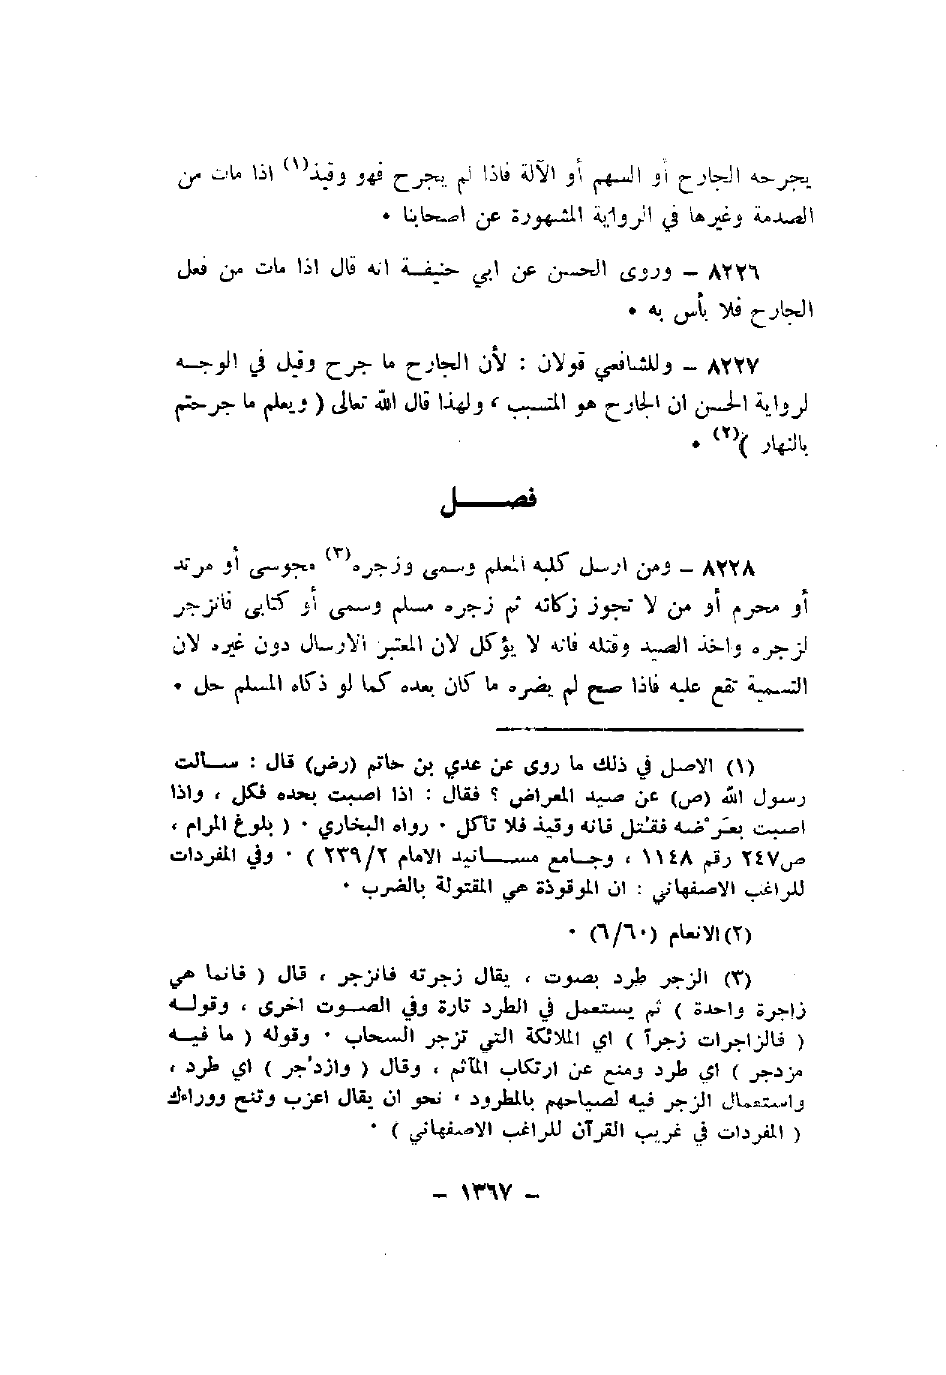 يجرحه الجارح أو السهم أو الآلة فاذا لم يجرح فهو وقيذ(١) اذا مات من
الصدمة وغيرها في الرواية المشهورة عن اصحابنا .
٨٢٢٦ – وروى الحسن عن ابي حنيفة انه قال اذا مات من فعل
الجارح فلا بأس به .
٨٢٢٧ – وللشافعي قولان : لأن الجارح ما جرح وقيل في الوجه
لرواية الحسن ان الجارح هو المتسبب ، ولهذا قال الله تعالى ( ويعلم ما جرحتم
بالنهار )(٢) .
فصل
٨٢٢٨ – ومن ارسل كلبه المعلم وسمى وزجره(٣) مجوسى أو مرتد
أو محرم أو من لا تجوز زكاته ثم زجره مسلم وسمى أو كتابى فانزجر
لزجره واخذ الصيد وقتله فانه لا يؤكل لان المعتبر الارسال دون غيره لان
التسمية تقع عليه فاذا صح لم يضره ما كان بعده كما لو ذكاه المسلم حل .
(١) الاصل في ذلك ما روى عن عدي بن حاتم (رض) قال : سألت
رسول الله (ص) عن صيد المعراض ؟ فقال : اذا اصبت بحده فكل ، واذا
اصبت بعَرْضه فقتل فانه وقيذ فلا تأكل . رواه البخاري . ( بلوغ المرام ،
ص٢٤٧ رقم ١١٤٨ ، وجامع مسانيد الامام ٢٣٩/٢ ) . وفي المفردات
للراغب الاصفهاني : ان الموقوذة هي المقتولة بالضرب .
(٢) الانعام (٦/٦٠) .
(٣) الزجر طرد بصوت ، يقال زجرته فانزجر ، قال ( فانما هي
زاجرة واحدة ) ثم يستعمل في الطرد تارة وفي الصوت اخرى ، وقوله
( فالزاجرات زجرآ ) اي الملائكة التي تزجر السحاب . وقوله ( ما فيه
مزدجر ) اي طرد ومنع عن ارتكاب المآثم ، وقال ( وازدُجر ) اي طرد ،
واستعمال الزجر فيه لصياحهم بالمطرود ، نحو ان يقال اعزب وتنح ووراءك
( المفردات في غريب القرآن للراغب الاصفهاني ) .
– ١٣٦٧ –